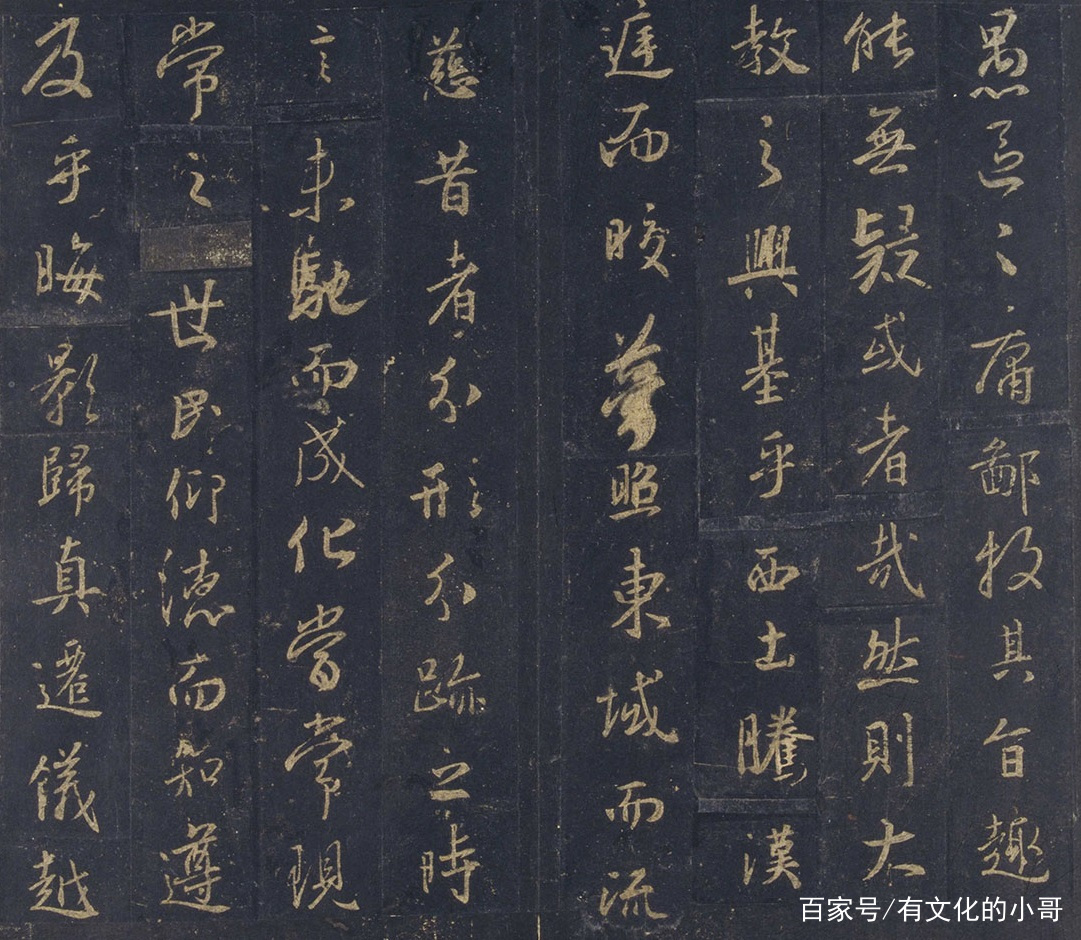 愚區〻庸鄙投其旨趣
能無疑或者哉然則大
教之興基乎西土騰漢
庭而皎夢照東域而流
慈昔者分形分跡之時
言未馳而成化當常現
常之世民仰德而知遵
及乎晦影歸真遷儀越
百家号/有文化的小哥